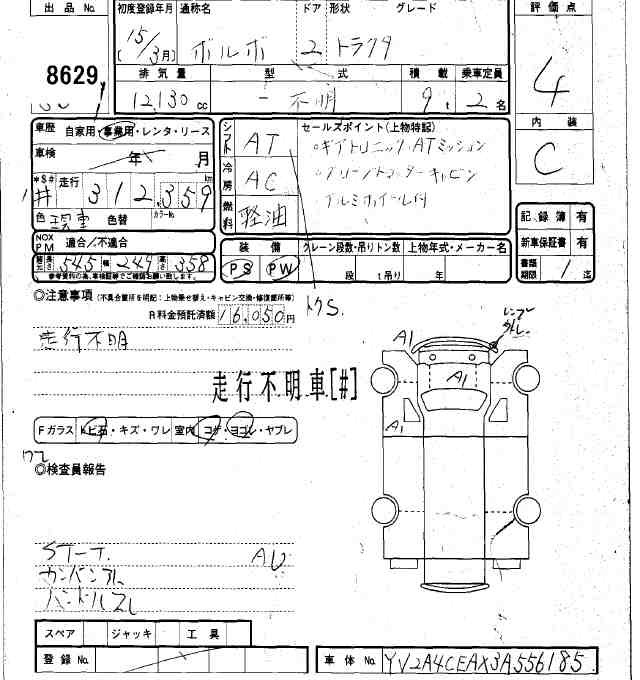 出品No. 初度登録年月 通称名 ドア 形状 グレード 評価点
15/3月 ボルボ 2 トラクタ 4
8629
排気量 型式 積載 乗車定員
12,130cc 不明 9t 2名
内装
C
車歴 自家用・事業用・レンタ・リース
車検 年 月
*S# # 走行 312,359 km
色 色替 カラーNo.
NOX PM 適合/不適合
長さ 545 幅 249 高さ 358
シフト AT
冷房 AC
燃料 軽油
セールスポイント(上物特記)
ギアトロニックATミッション
グリーントローターキャビン
アルミホイール付
装備 クレーン段数・吊りトン数 上物年式・メーカー名
PS PW 段 t吊り 年
記録簿 有
新車保証書 有
書類期限 1 迄
◎注意事項 (不具合箇所を明記:上物乗せ替え・キャビン交換・修復箇所等)
R料金預託済額 16,050円
走行不明
走行不明車[#]
A1
A1
A1
Fガラス トビ石・キズ・ワレ 室内 コゲ・ヨゴレ・ヤブレ
◎検査員報告
スペア ジャッキ 工具
登録No.
車体No. YV2A4CEAX3A556185